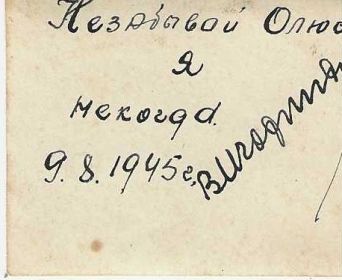 Незабывай Олюс
я
некогда.
9.8.1945г.